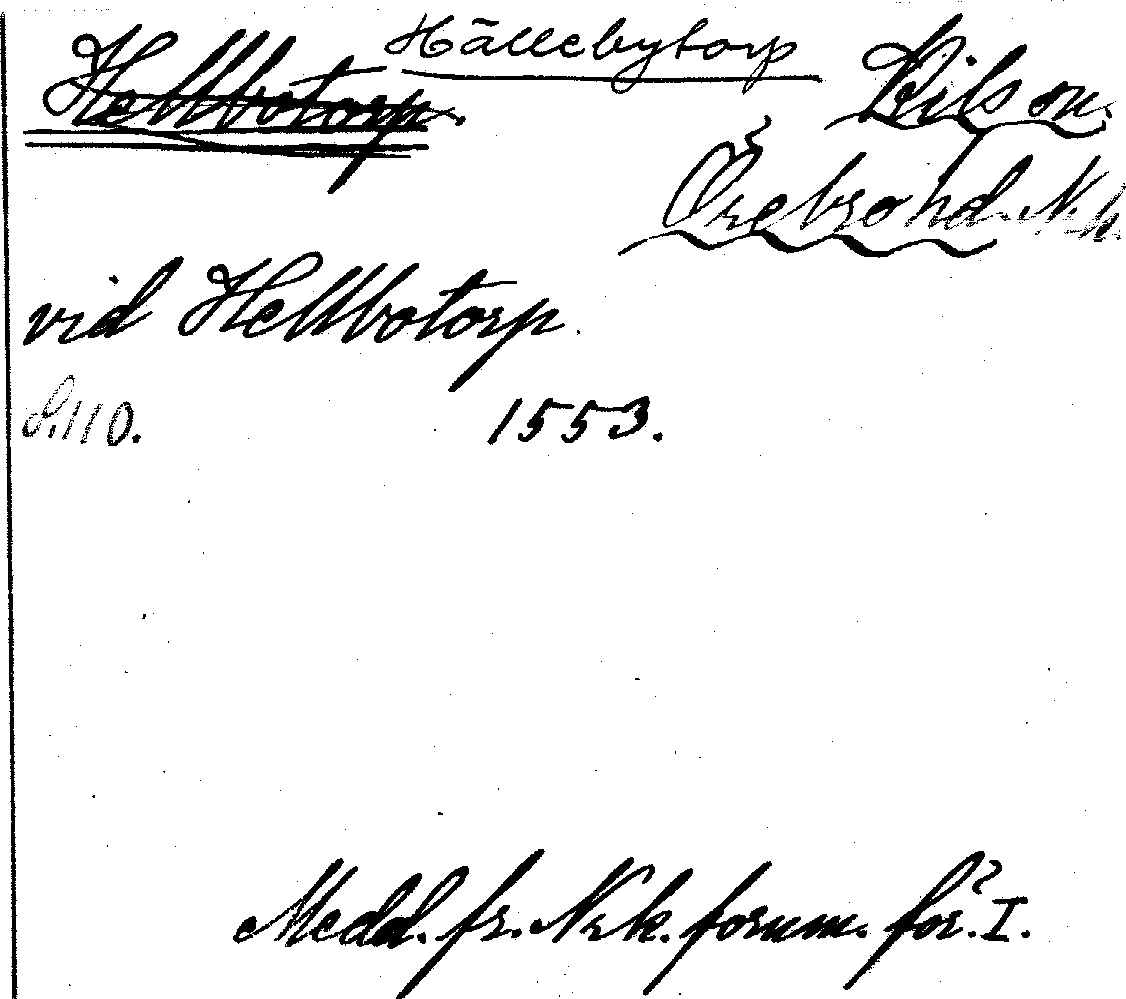 Hellbotorp. Hällebytorp Kilson.
Örebro hd. N.k.
vid Hellbotorp.
S.110. 1553.
Medd. fr. Nrk. fornm. för. I.